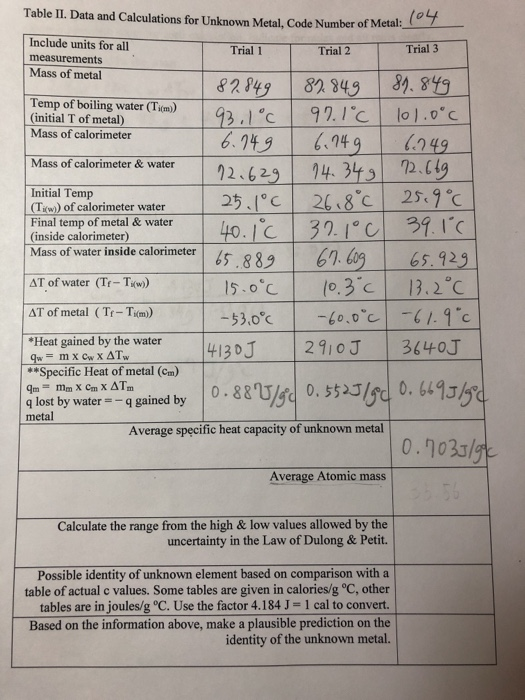 Table II. Data and Calculations for Unknown Metal, Code Number of Metal: 104
Include units for all
measurements
Trial 1 Trial 2 Trial 3
Mass of metal 87.84g 87.84g 87.84g
Temp of boiling water (Ti(m))
(initial T of metal) 93.1°C 97.1°C 101.0°C
Mass of calorimeter 6.74g 6.74g 6.74g
Mass of calorimeter & water 72.62g 74.34g 72.66g
Initial Temp
(Ti(w)) of calorimeter water 25.1°C 26.8°C 25.9°C
Final temp of metal & water
(inside calorimeter) 40.1°C 37.1°C 39.1°C
Mass of water inside calorimeter 65.88g 67.60g 65.92g
ΔT of water (Tf – Ti(w)) 15.0°C 10.3°C 13.2°C
ΔT of metal ( Tf – Ti(m)) -53.0°C -60.0°C -61.9°C
*Heat gained by the water
qw = m x cw x ΔTw 4130J 2910J 3640J
**Specific Heat of metal (cm)
qm = mm x cm x ΔTm
q lost by water = – q gained by
metal
0.887J/g°C 0.552J/g°C 0.669J/g°C
Average specific heat capacity of unknown metal 0.703J/g°C
Average Atomic mass
Calculate the range from the high & low values allowed by the
uncertainty in the Law of Dulong & Petit.
Possible identity of unknown element based on comparison with a
table of actual c values. Some tables are given in calories/g °C, other
tables are in joules/g °C. Use the factor 4.184 J = 1 cal to convert.
Based on the information above, make a plausible prediction on the
identity of the unknown metal.